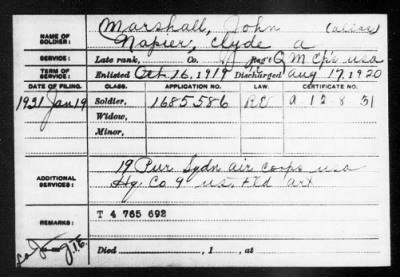 NAME OF SOLDIER: Marshall, John (alias)
Napier, Clyde a
SERVICE: Late rank, Co. Reg't Q M Cps usa
TERM OF SERVICE: Enlisted Oct. 16, 1919 Discharged Aug 17, 1920
DATE OF FILING. CLASS. APPLICATION NO. LAW. CERTIFICATE NO.
1931 Jan 19 Soldier, 1685586
Widow,
Minor,
ADDITIONAL SERVICES: 19 Pur Sqdn air corps usa
Hq. Co 9 us. Fld art
REMARKS: T 4 765 692
Died , 1 , at